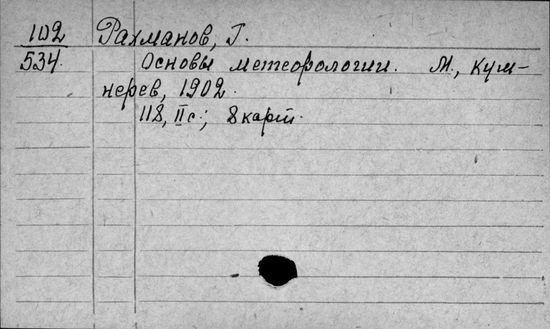 102 Рахманов, Г.
534. Основы метеорологии. М., Куш-
нерев, 1902.
118, II с.; 8 карт.